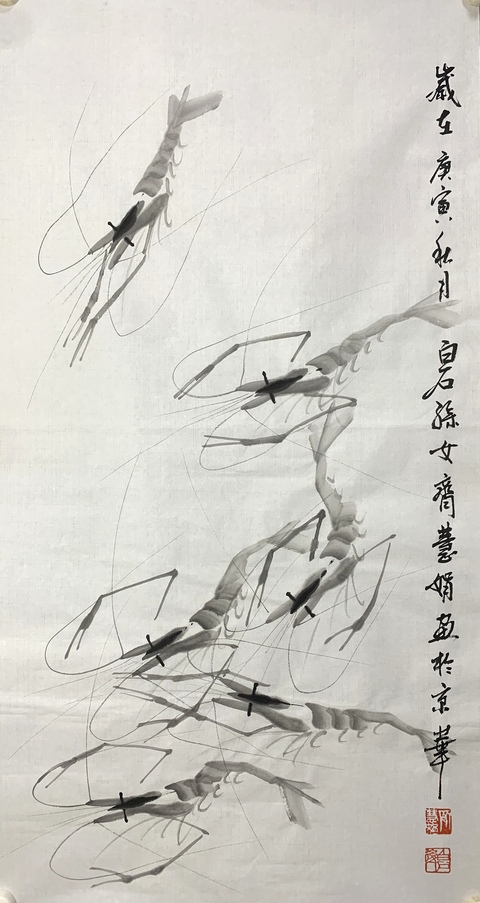 歲在庚寅秋月白石孫女齊慧娟畫於京華